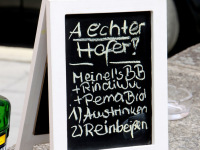 A echter
Hofer!
Meinel's BB
+ Rindswurst
+ Rema Brot
1) Austrinken
2) Reinbeißen